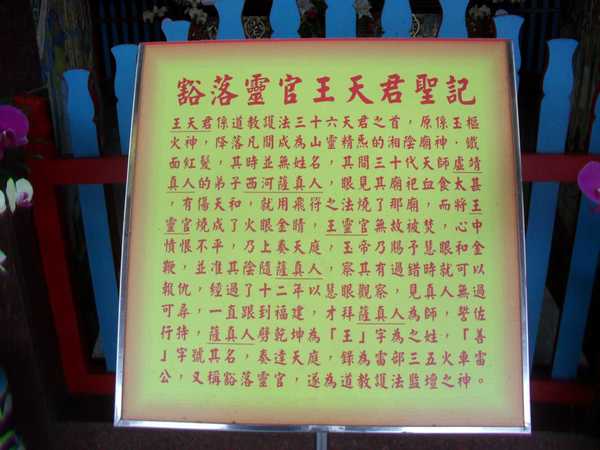 豁落靈官王天君聖記
王天君係道教護法三十六天君之首，原係玉樞
火神，降落凡間成為山靈精炁的湘陰廟神．鐵
面紅髮，其時並無姓名，其間三十代天師虛靖
真人的弟子西河薩真人，眼見其廟祀血食太甚
，有傷天和，就用飛符之法燒了那廟，而將王
靈官燒成了火眼金睛，王靈官無故被焚，心中
憤恨不平，乃上奏天庭，玉帝乃賜予慧眼和金
鞭，並准其陰隨薩真人，察其有過錯時就可以
報仇，經過了十二年以慧眼觀察，見真人無過
可尋，一直跟到福建，才拜薩真人為師，誓佐
行持，薩真人劈乾坤為「王」字為之姓，「善
」字號其名，奏達天庭，錄為雷部三五火車雷
公，又稱豁落靈官，遂為道教護法監壇之神。